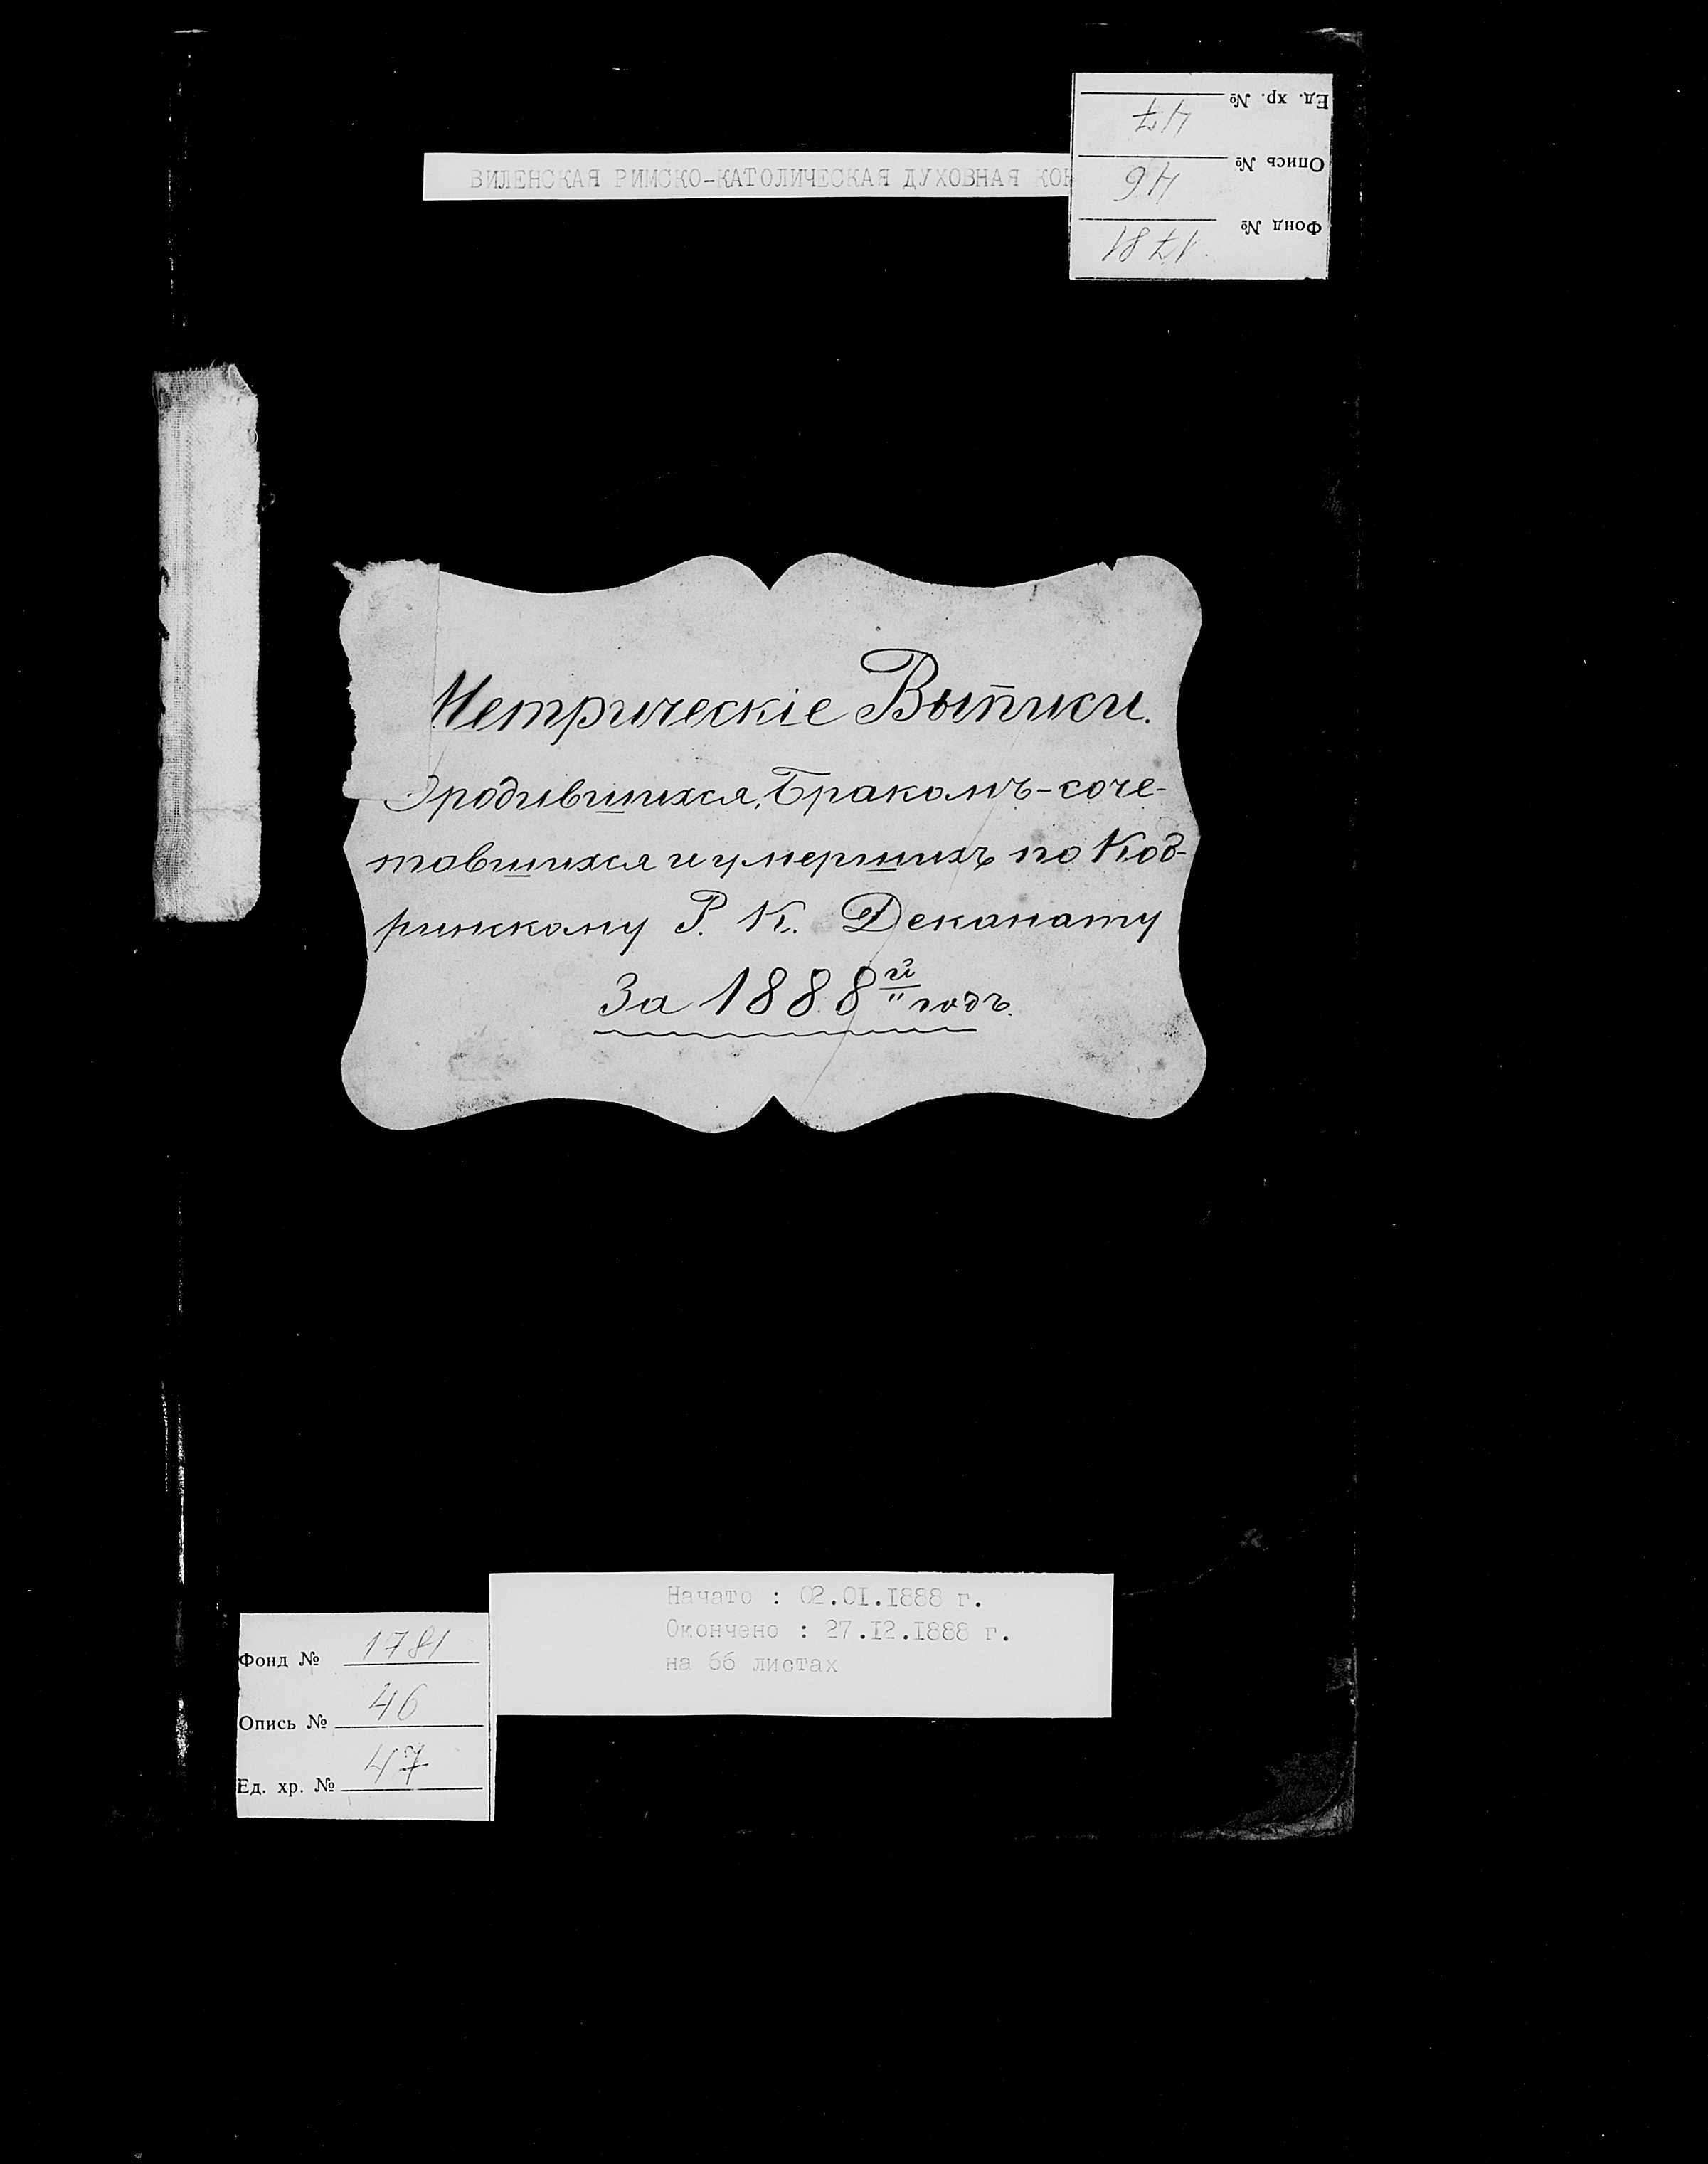 ВИЛЕНСКАЯ РИМСКО-КАТОЛИЧЕСКАЯ ДУХОВНАЯ КОН
Ед. хр. № 47
Опись № 46
Фонд № 1781
Метрическіе Выписи.
О родившихся, Бракомъ-соче-
тавшихся и умершихъ по Коб-
ринскому Р. К. Деканату
За 1888й годъ.
Начато : 02.01.1888 г.
Окончено : 27.12.1888 г.
на 66 листах
Фонд № 1781
Опись № 46
Ед. хр. № 47